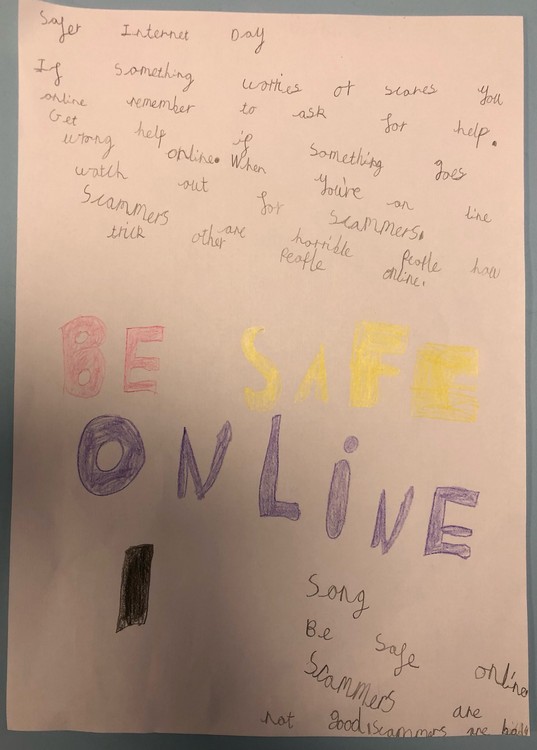 Safer Internet Day
If something worries or scares you
online remember to ask for help.
Get help if something goes
wrong online. When you're on line
watch out for scammers.
Scammers are horrible people how
trick other people online.
BE SAFE
ONLiNE
Song
Be safe online
Scammers are
not good, scammers are bad